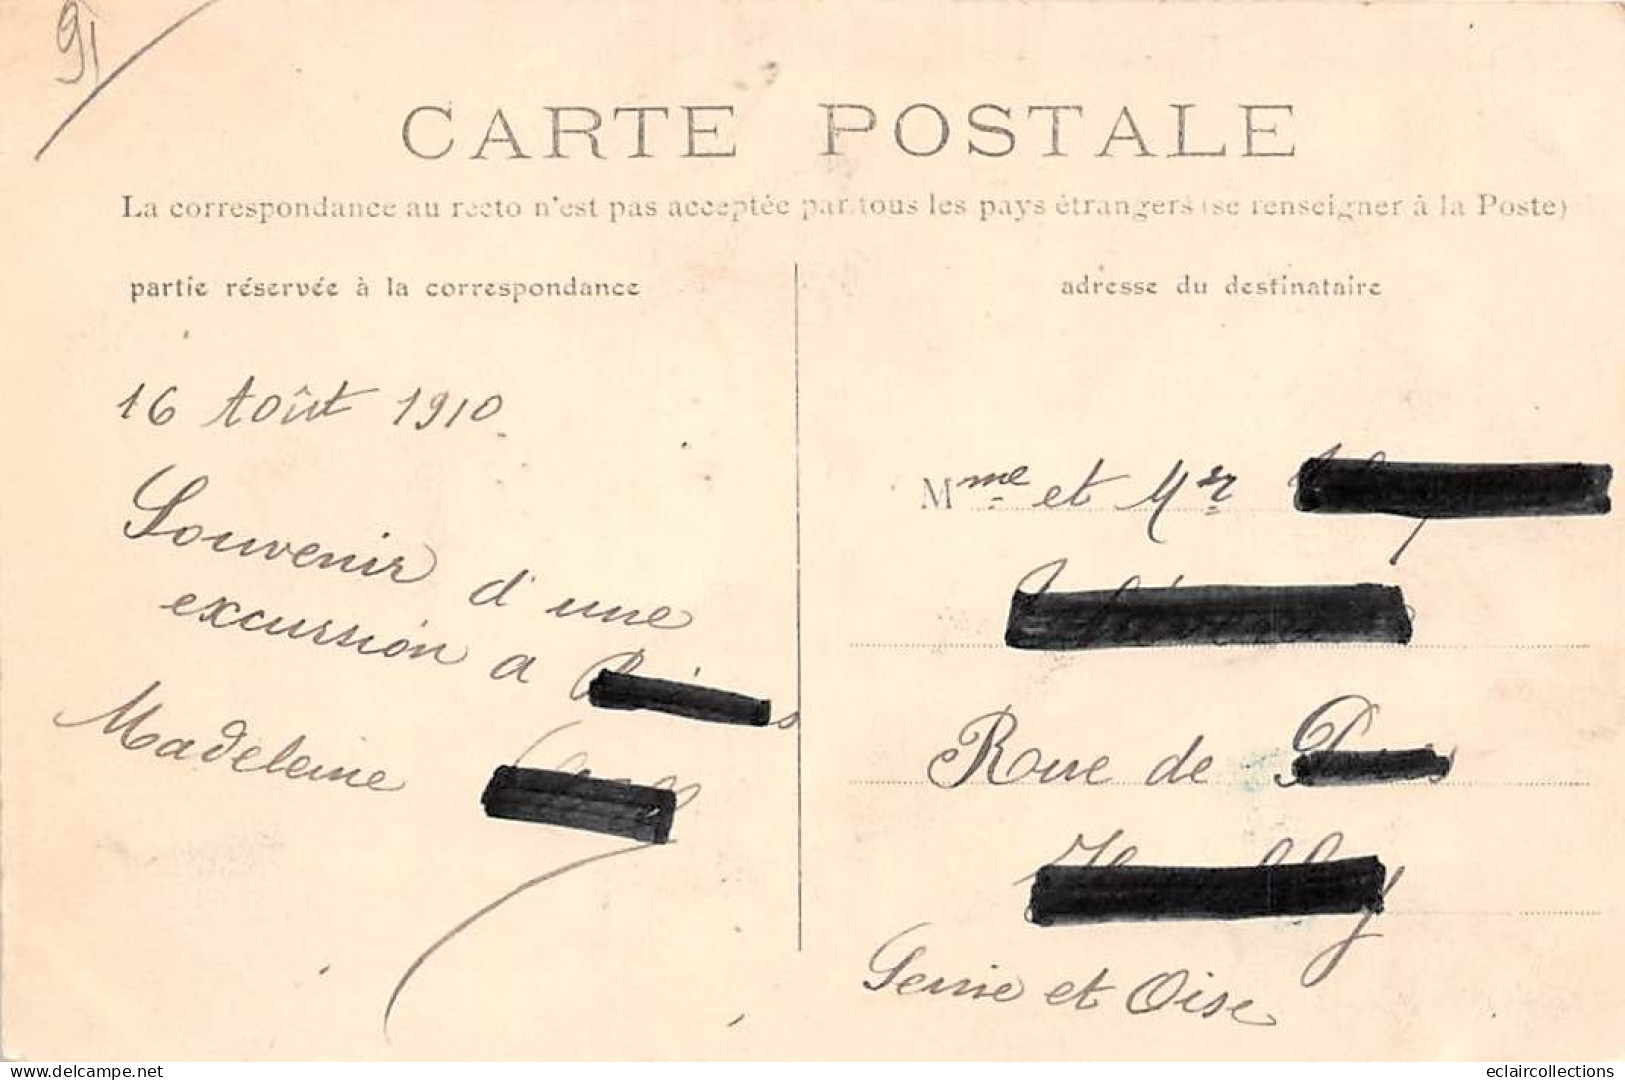 91
CARTE POSTALE
La correspondance au recto n'est pas acceptée par tous les pays étrangers (se renseigner à la Poste)
partie réservée à la correspondance
adresse du destinataire
16 Août 1910
Souvenir d'une
excursion a
Madeleine
Mme et Mr
Rue de
Seine et Oise
www.delcampe.net
eclaircollections